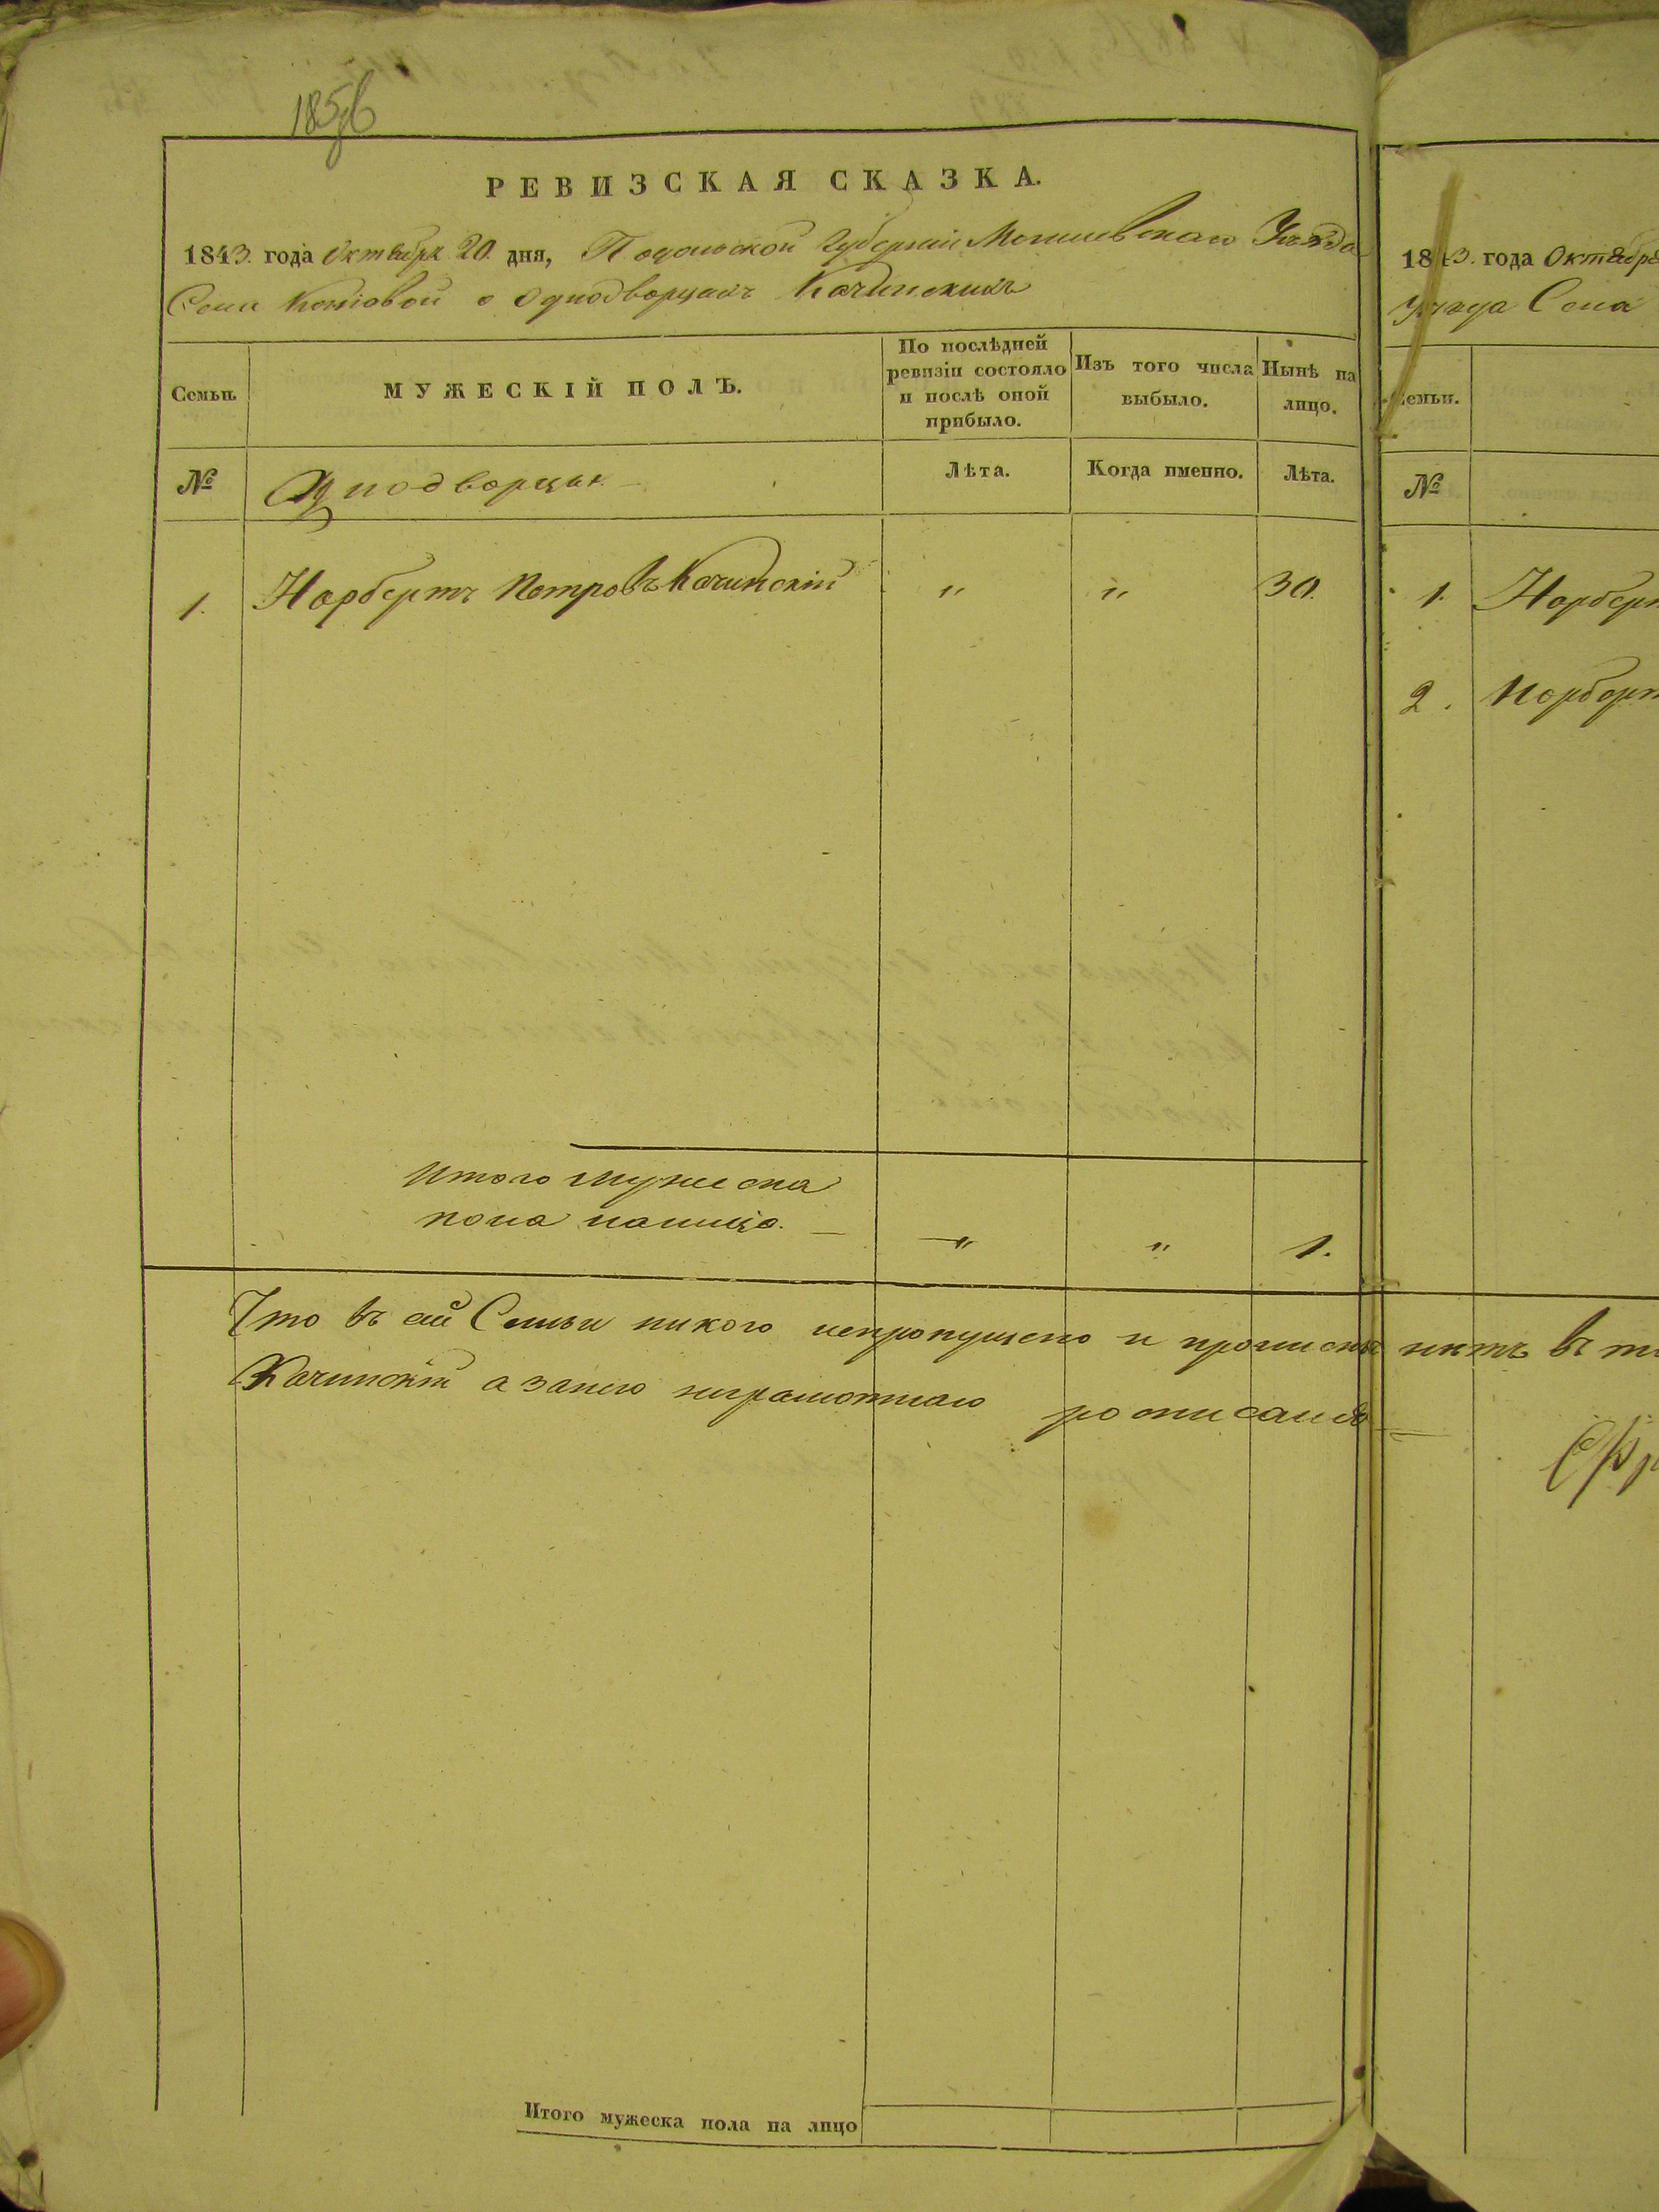 185
РЕВИЗСКАЯ СКАЗКА.
1843. года Октября 20. дня, Подольской Губерніи Могилевскаго Уѣзда
Села Конювой о Однодворцахъ Качинскихъ
Семьи.
МУЖЕСКІЙ ПОЛЪ.
По послѣдней ревизіи состояло и послѣ оной прибыло.
Изъ того числа выбыло.
Нынѣ на лицо.
№
Однодворцы.
Лѣта.
Когда именно.
Лѣта.
1. Норбертъ Петровъ Качинскій " " 30.
Итого мужеска
пола налицо. — " " 1.
Что въ сей Семьи никого непропущено и прописны нѣтъ въ
Качинскій а занего неграмотнаго росписался
Итого мужеска пола на лицо
1843. года Октября
Уѣзда Села
Семьи.
№
1. Норбер
2. Норберт